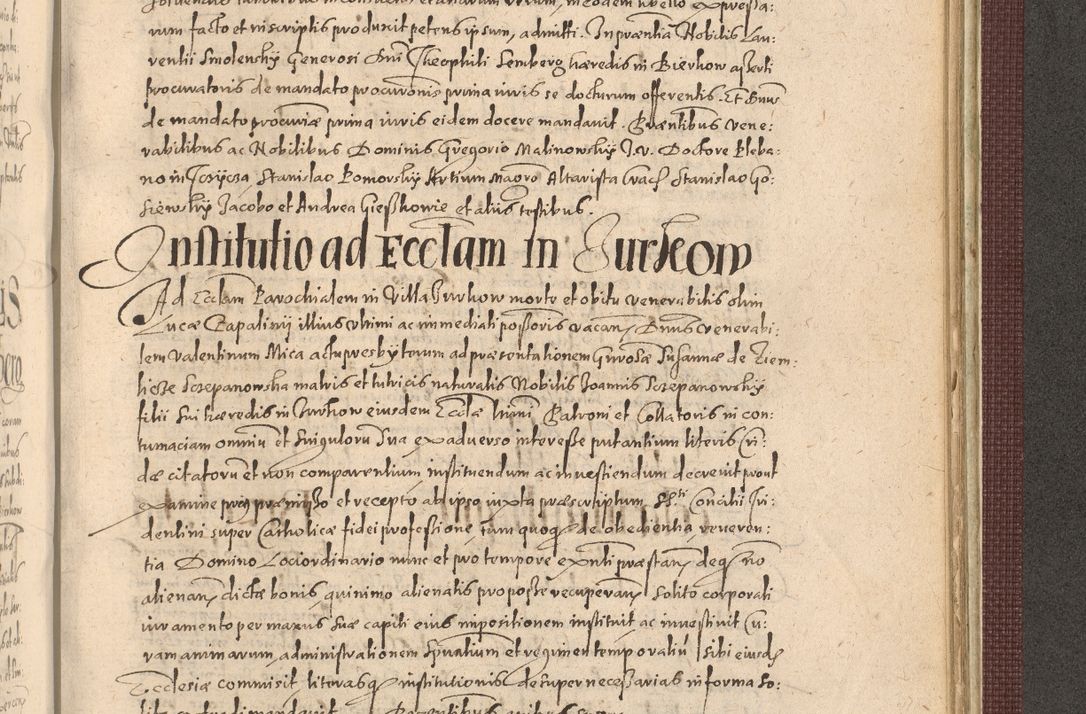 rum facto et in scriptis produxit petens ipsum, admitti. In præntia Nobilis Lau:
rentii Smolenskÿ Generosi Dnī Theophili Semberg hæredis in Bierkow asserti
procuratoris de mandato procurōnis prima iuris se docturum offerentis. Et Dnus
de mandato procuræ prima iuris eidem docere mandavit. Præntibus vene:
rabilibus ac Nobilibus Dominis Gregorio Malinowskÿ I.V. Doctore Pleba:
no in Stanislao Pomorskÿ Artium Magro Altarista Crac Stanislao Go:
Jacobo et Andrea Gieszkowie et aliis testibus.
Institutio ad Ecclam in Jurkow
Ad Ecclam Parochialem in Villa Jurkow morte et obitu venerabilis olim
Lucæ Capalinÿ illius ultimi ac immediati possoris vacan Dnus venerabi:
lem Valentinum Mica actu presbyterum ad præsentationem Gnrosæ Susannæ de Zem:
Sczepanowska matris et tutricis naturalis Nobilis Joannis Sczepanowskÿ
filii sui hæredis in Jurkow eiusdem Ecclæ Patroni et Collatoris in con:
tumaciam omniū et singulorū sua ex adverso interesse putantium literis Cri:
dæ citatorū et non comparentium instituendum ac investiendum decrevit prout
examine præmisso et recepto ab ipso iuxta præscriptum Sti Concilii Tri:
dentini super Catholicæ fidei professione, tum quoq de obedientia, reveren:
tia Domino Lociordinario nunc et pro tempore exnti præstan, deq no
alienan dictæ bonis, quinimo alienatis pro posse recuperan, solito corporali
iuramento per manus suæ capiti eius impositionem instituit ac investivit Cu:
ram animarum, administrationem Spualium et regimen temporaliū sibi eiusd
Ecclesiæ commisit, literasq institutionis desuper necessarias in forma so: